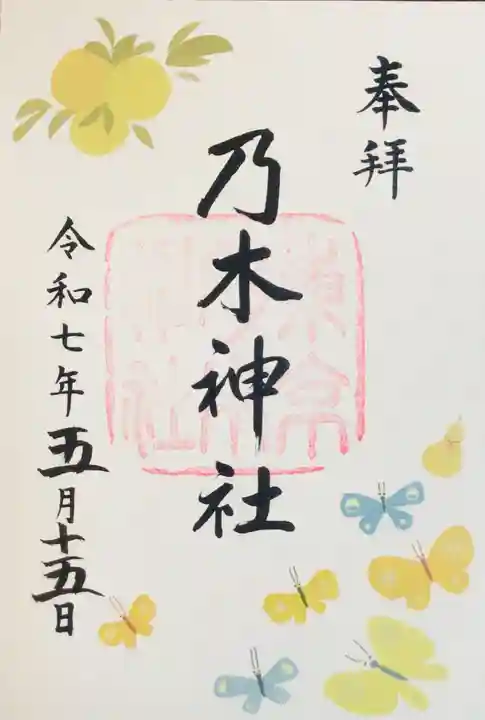 奉拝
乃木神社
令和七年五月十五日